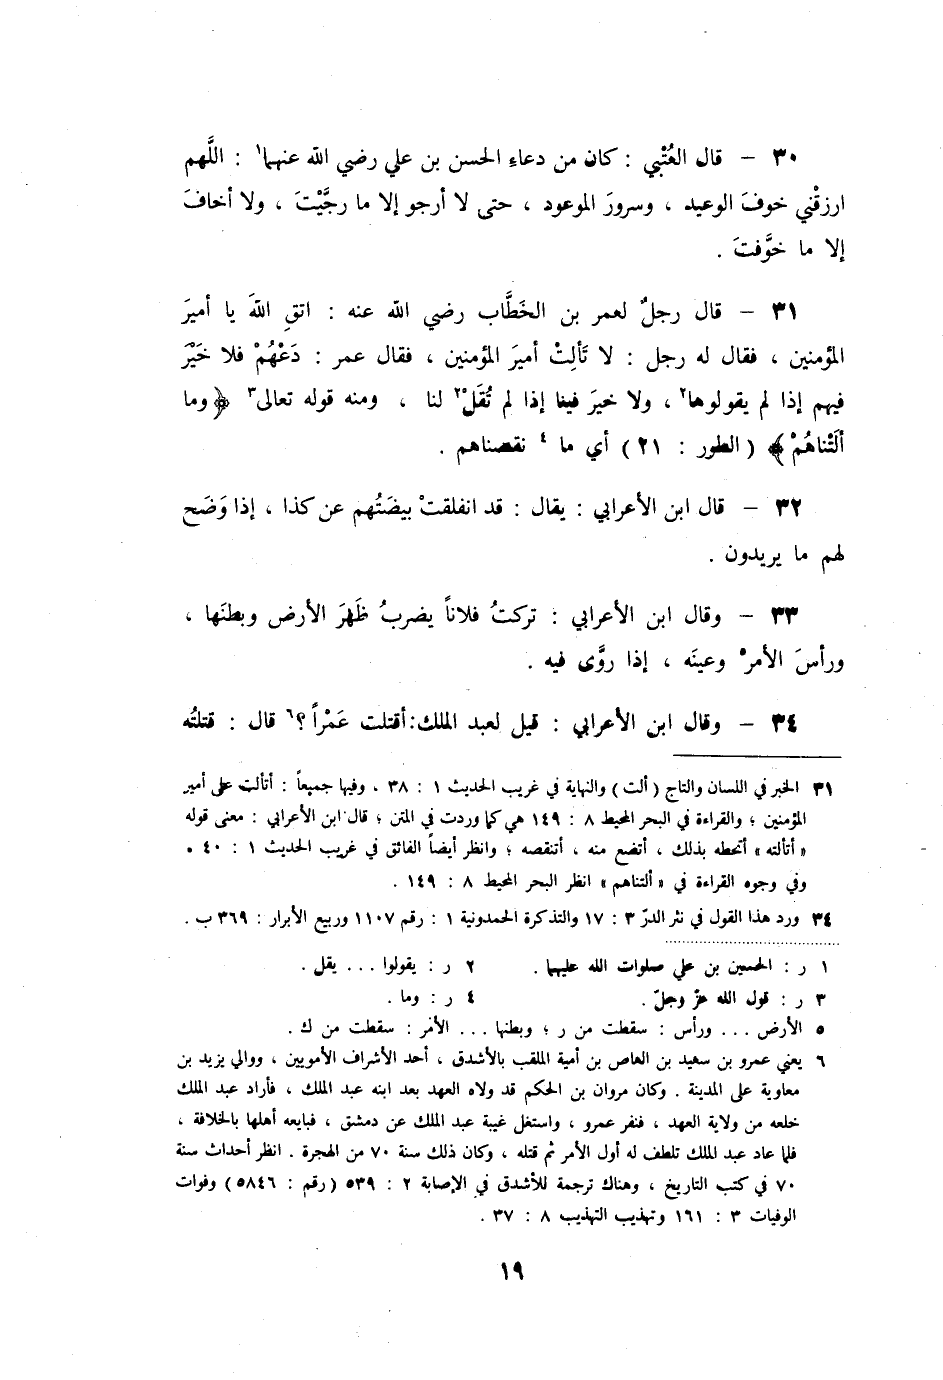 ٣٠ – قال العُتْبي : كان من دعاءِ الحسن بن علي رضي الله عنهما١ : اللَّهم
ارزقْني خوفَ الوعيد ، وسرورَ الموعود ، حتى لا أرجو إلا ما رجَّيْتَ ، ولا أخافَ
إلا ما خوَّفتَ .
٣١ – قال رجلٌ لعمر بن الخَطَّاب رضي الله عنه : اتقِ اللهَ يا أميرَ
المؤمنين ، فقال له رجل : لا تَألِتْ أميرَ المؤمنين ، فقال عمر : دَعْهُمْ فلا خَيْرَ
فيهم إذا لم يقولوها٢ ، ولا خيرَ فينا إذا لم تُقَلْ٢ لنا ، ومنه قوله تعالى٣ ﴿ وما
ألَتْناهُمْ ﴾ ( الطور : ٢١ ) أي ما ٤ نقصناهم .
٣٢ – قال ابن الأعرابي : يقال : قد انفلقتْ بيضَتُهم عن كذا ، إذا وَضَح
لهم ما يريدون .
٣٣ – وقال ابن الأعرابي : تركتُ فلاناً يضربُ ظَهرَ الأرض وبطنَها ،
ورأسَ الأمر٥ وعينَه ، إذا روَّى فيه .
٣٤ – وقال ابن الأعرابي : قيل لعبد الملك : أقتلت عَمْراً ؟٦ قال : قتلتُه
٣١ الخبر في اللسان والتاج ( ألت ) والنهاية في غريب الحديث ١ : ٣٨ ، وفيها جميعاً : أتألت على أمير
المؤمنين ؛ والقراءة في البحر المحيط ٨ : ١٤٩ هي كما وردت في المتن ؛ قال ابن الأعرابي : معنى قوله
« أتألته » أتحطه بذلك ، أتضع منه ، أتنقصه ؛ وانظر أيضاً الفائق في غريب الحديث ١ : ٤٠ .
وفي وجوه القراءة في « ألتناهم » انظر البحر المحيط ٨ : ١٤٩ .
٣٤ ورد هذا القول في نثر الدرّ ٣ : ١٧ والتذكرة الحمدونية ١ : رقم ١١٠٧ وربيع الأبرار : ٣٦٩ ب .
١ ر : الحسين بن علي صلوات الله عليهما . ٢ ر : يقولوا ... يقل .
٣ ر : قول الله عزّ وجلّ . ٤ ر : وما .
٥ الأرض ... ورأس : سقطت من ر ؛ وبطنها ... الأمر : سقطت من ك .
٦ يعني عمرو بن سعيد بن العاص بن أمية الملقب بالأشدق ، أحد الأشراف الأمويين ، ووالي يزيد بن
معاوية على المدينة . وكان مروان بن الحكم قد ولاه العهد بعد ابنه عبد الملك ، فأراد عبد الملك
خلعه من ولاية العهد ، فنفر عمرو ، واستغل غيبة عبد الملك عن دمشق ، فبايعه أهلها بالخلافة ،
فلما عاد عبد الملك تلطف له أول الأمر ثم قتله ، وكان ذلك سنة ٧٠ من الهجرة . انظر أحداث سنة
٧٠ في كتب التاريخ ، وهناك ترجمة للأشدق في الإصابة ٢ : ٥٣٩ ( رقم : ٥٨٤٦ ) وفوات
الوفيات ٣ : ١٦١ وتهذيب التهذيب ٨ : ٣٧ .
١٩